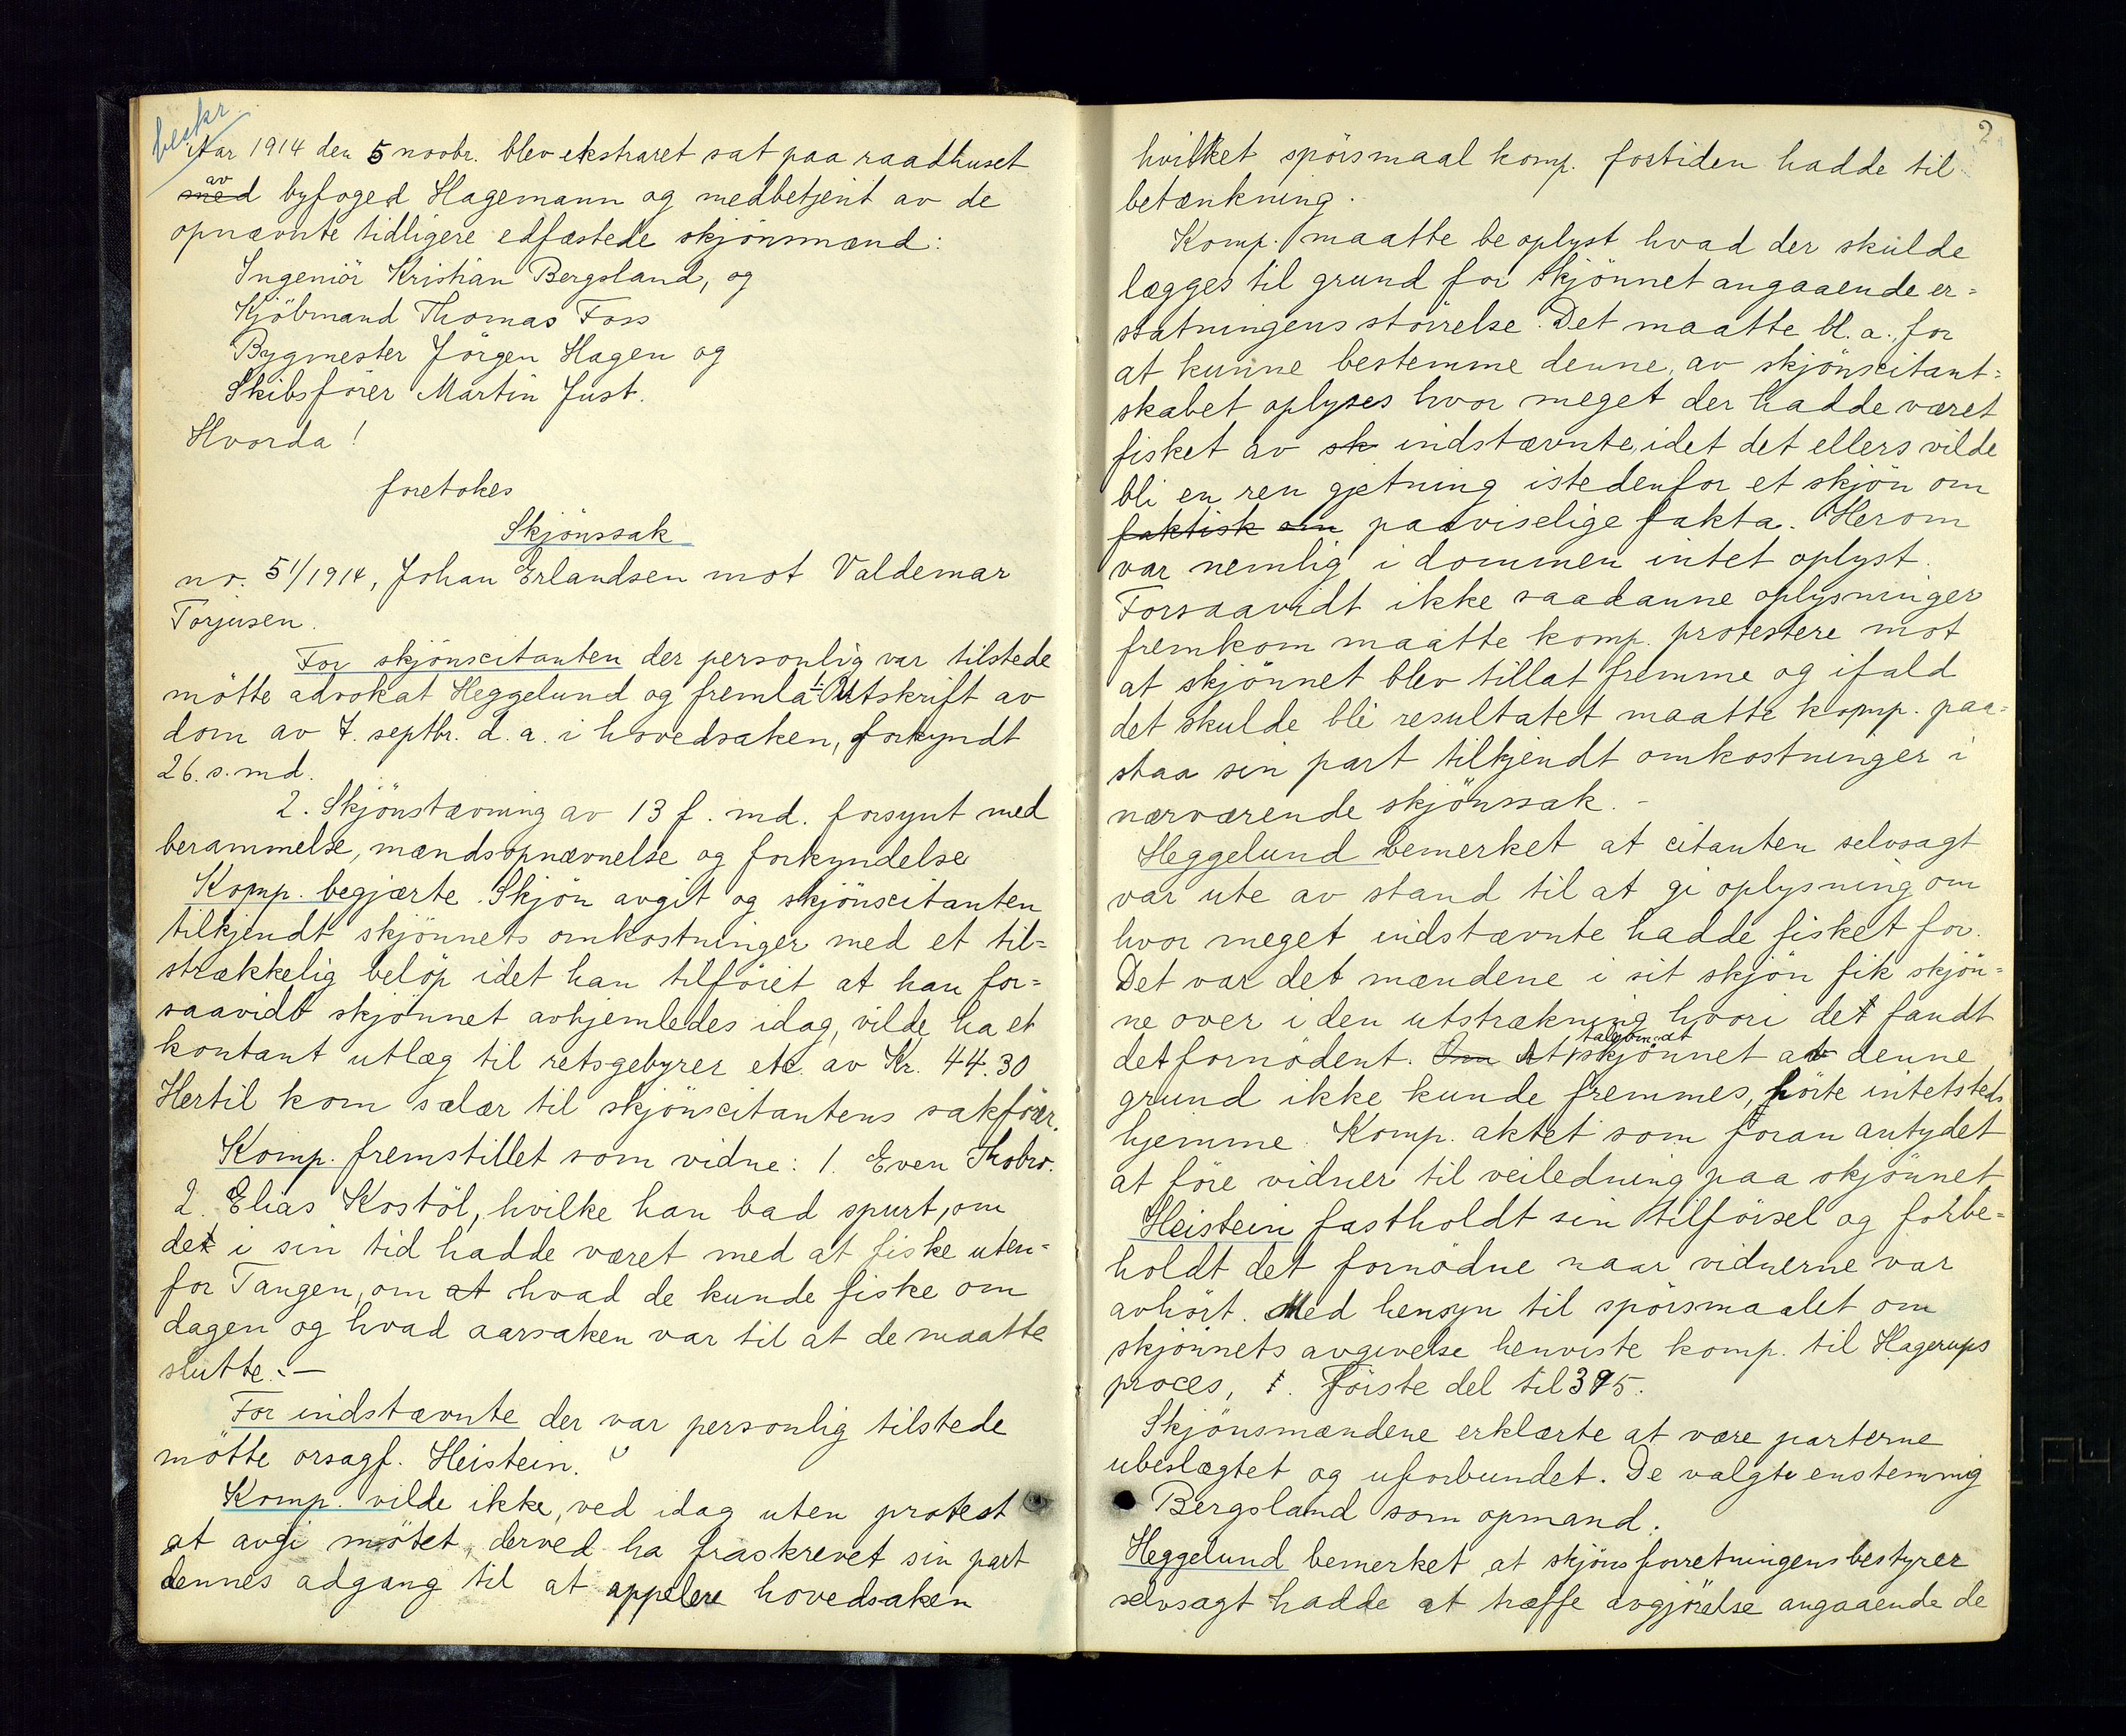 beskr
Aar 1914 den 5 novbr. blev ekstraret sat paa raadhuset
av
med byfoged Hagemann og medbetjent av de
opnævnte tidligere edfæstede skjönsmænd:
Ingeniör Kristian Bergsland, og
Kjöbmand Thomas Foss
Bygmester Jörgen Hagen og
Skibsförer Martin Just.
Hvorda!
foretokes
Skjönssak
nr. 51/1914, Johan Erlandsen mot Valdemar
Torjusen.
For skjönscitanten der personlig var tilstede
mötte advokat Heggelund og fremla 1. Utskrift av
dom av 7. septbr. d. a. i hovedsaken, forkyndt
26. s. md.
2. Skjönstævning av 13 f. md. forsynt med
berammelse, mændsopnævnelse og forkyndelse
Komp. begjærte Skjön avgit og skjönscitanten
tilkjendt skjönnets omkostninger med et til=
strækkelig belöp idet han tilföiet at han for=
saavidt skjönnet avhjemledes idag, vilde ha et
kontant utlæg til retsgebyrer etc. av Kr. 44.30
Hertil kom salær til skjönscitantens sakförer.
Komp. fremstillet som vidne: 1. Even Thobro.
2. Elias Kostöl, hvilke han bad spurt, om
det i sin tid hadde været med at fiske uten=
for Tangen, om at hvad de kunde fiske om
dagen og hvad aarsaken var til at de maatte
slutte. –
For indstævnte der var personlig tilstede
mötte orsagf. Heistein.
Komp. vilde ikke, ved idag uten protest
at avgi mötet, derved ha fraskrevet sin part
dennes adgang til at appelere hovedsaken
2
hvilket spörsmaal komp. fortiden hadde til
betænkning.
Komp. maatte be oplyst hvad der skulde
lægges til grund for skjönnet angaaende er=
statningens störrelse. Det maatte bl. a. for
at kunne bestemme denne, av skjönscitant=
skabet oplyses hvor meget der hadde været
fisket av sk indstævnte, idet det ellers vilde
bli en ren gjetning istedenfor et skjön om
faktisk om paaviselige fakta. Herom
var nemlig i dommen intet oplyst.
Forsaavidt ikke saadanne oplysninger
fremkom maatte komp. protestere mot
at skjönnet blev tillat fremme og ifald
det skulde bli resultatet maatte komp. paa=
staa sin part tilkjendt omkostninger i
nærværende skjönssak. –
Heggelund bemerket at citanten selvsagt
var ute av stand til at gi oplysning om
hvor meget indstævnte hadde fisket for.
Det var det mændene i sit skjön fik skjön=
ne over i den utstrækning hvori det fandt
talen om at
det fornödent. Om At skjönnet av denne
grund ikke kunde fremmes, hörte intetsteds
hjemme. Komp. aktet som foran antydet
at före vidner til veiledning paa skjönnet
Heistein fastholdt sin tilförsel og forbe=
holdt det fornödne naar vidnerne var
avhört. Med hensyn til spörsmaalet om
skjönnets avgivelse henviste komp. til Hagerups
proces, 1. Förste del til 395.
Skjönsmændene erklærte at være parterne
ubeslægtet og uforbundet. De valgte enstemmig
Bergsland som opmand.
Heggelund bemerket at skjönsforretningens bestyrer
selvsagt hadde at træffe avgjörelse angaaende de